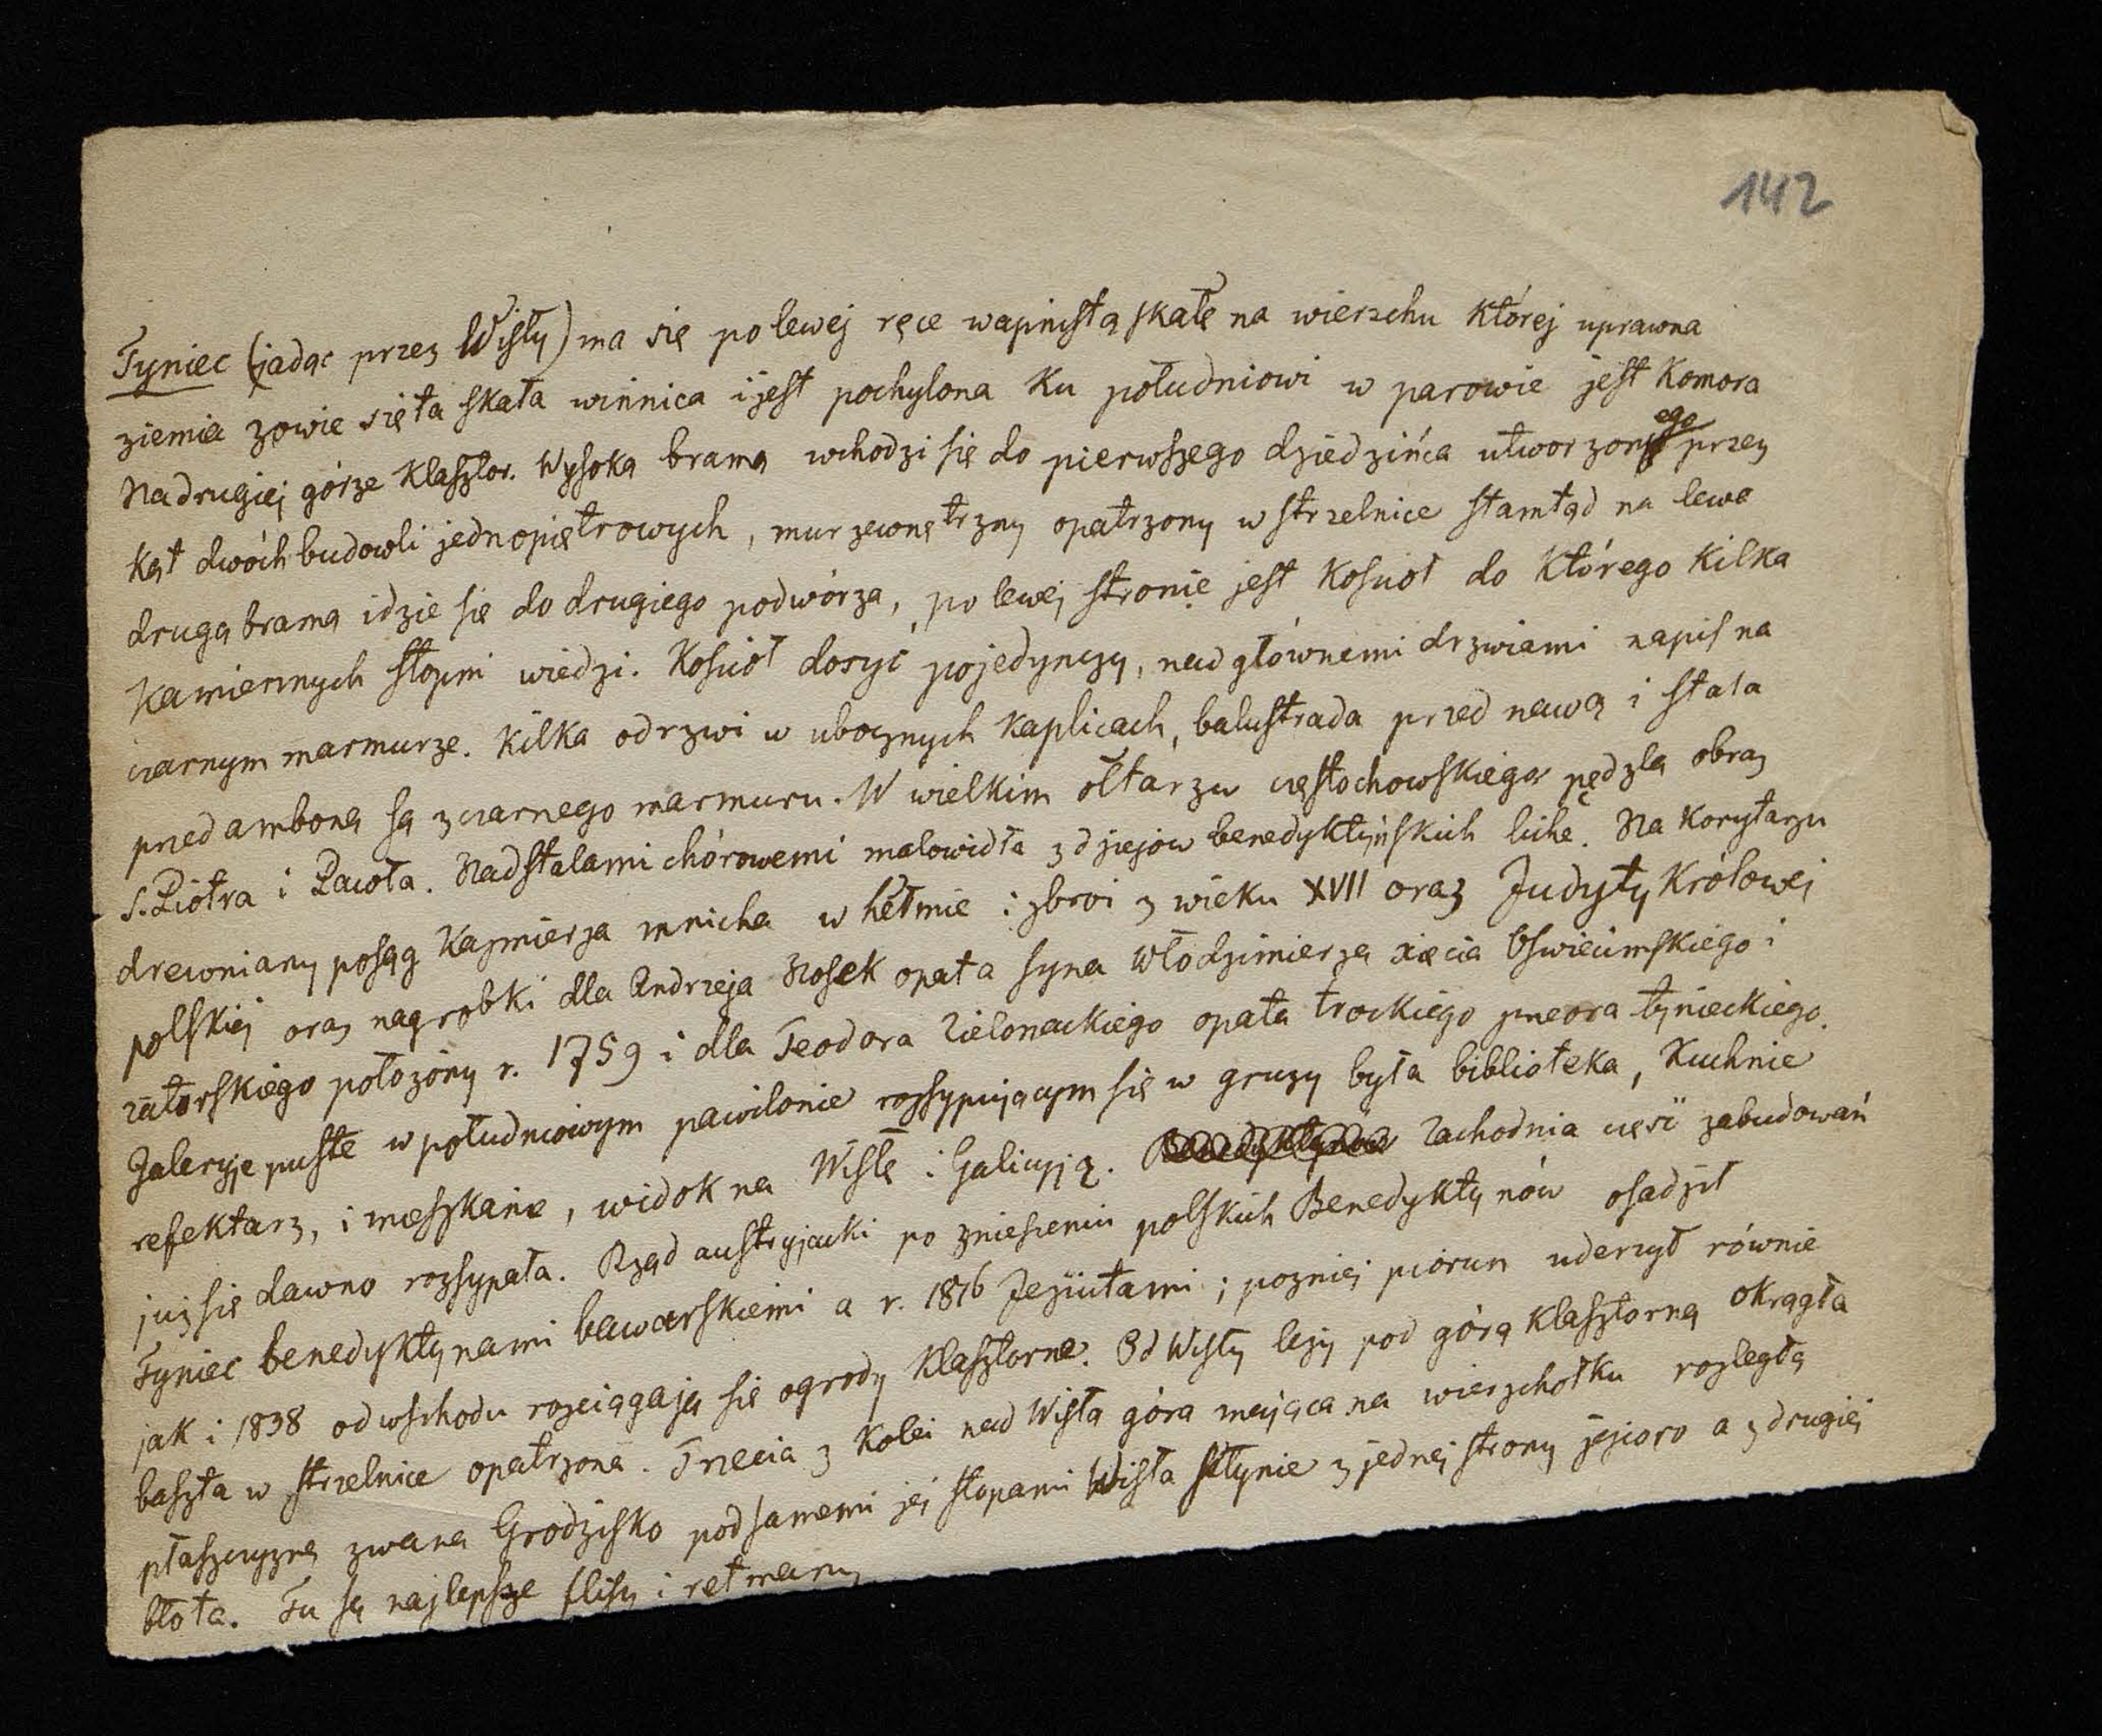 142
Tyniec (jadąc przez Wisły) ma się po lewej ręce wapnistą skałę na wierzchu której uprawna
ziemia zowie się ta skała winnica i jest pochylona ku południowi w parowie jest komora
Na drugiej górze klasztor. Wysoką bramą wchodzi się do pierwszego dziedzińca utworzonego przez
kąt dwóch budowli jednopiętrowych, mur zewnętrzny opatrzony w strzelnice stamtąd na lewo
drugą bramą idzie się do drugiego podwórza, po lewej stronie jest kościoł do którego kilka
kamiennych stopni wiedzi. Kościoł dosyć pojedynczy, nad głównemi drzwiami napis na
czarnym marmurze. Kilka odrzwi w ubocznych kaplicach, balustrada przed nawą i stala
przed amboną są z czarnego marmuru. W wielkim ołtarzu częstochowskiego pędzla obraz
S. Piotra i Pawła. Nad stalami chórowemi malowidła z dziejów benedyktyńskich liche. Na korytarzu
drewniany posąg Kaźmierza mnicha w hełmie i zbroi z wieku XVII oraz Judyty Królowej
polskiej oraz nagrobki dla Andrzeja Nosek opata syna Włodzimierza xięcia Oświecimskiego i
zatorskiego położony r. 1759 i dla Teodora Zielonackiego opata trockiego przeora tynieckiego.
Galeryje puste w południowym pawilonie rozsypującym się w gruzy była biblioteka, Kuchnie
refektarz, i mieszkanie, widok na Wisłę i Galicyją. Benedyktynów Zachodnia część zabudowań
już się dawno rozsypała. Rząd austryjacki po zniesieniu polskich Benedyktynów osadził
Tyniec benedyktynami bawarskiemi a r. 1816 Jezuitami; pozniej piorun uderzył równie
jak i 1838 od wschodu rozciągają się ogrody klasztorne. Od Wisły leży pod górą klasztorną okrągła
baszta w strzelnice opatrzona. Trzecia z kolei nad Wisłą góra mająca na wierzchołku rozległą
płaszczyznę zwana Grodzisko pod samemi jej stopami Wisła płynie z jednej strony jezioro a z drugiej
błota. Tu są najlepsze flisy i retmany